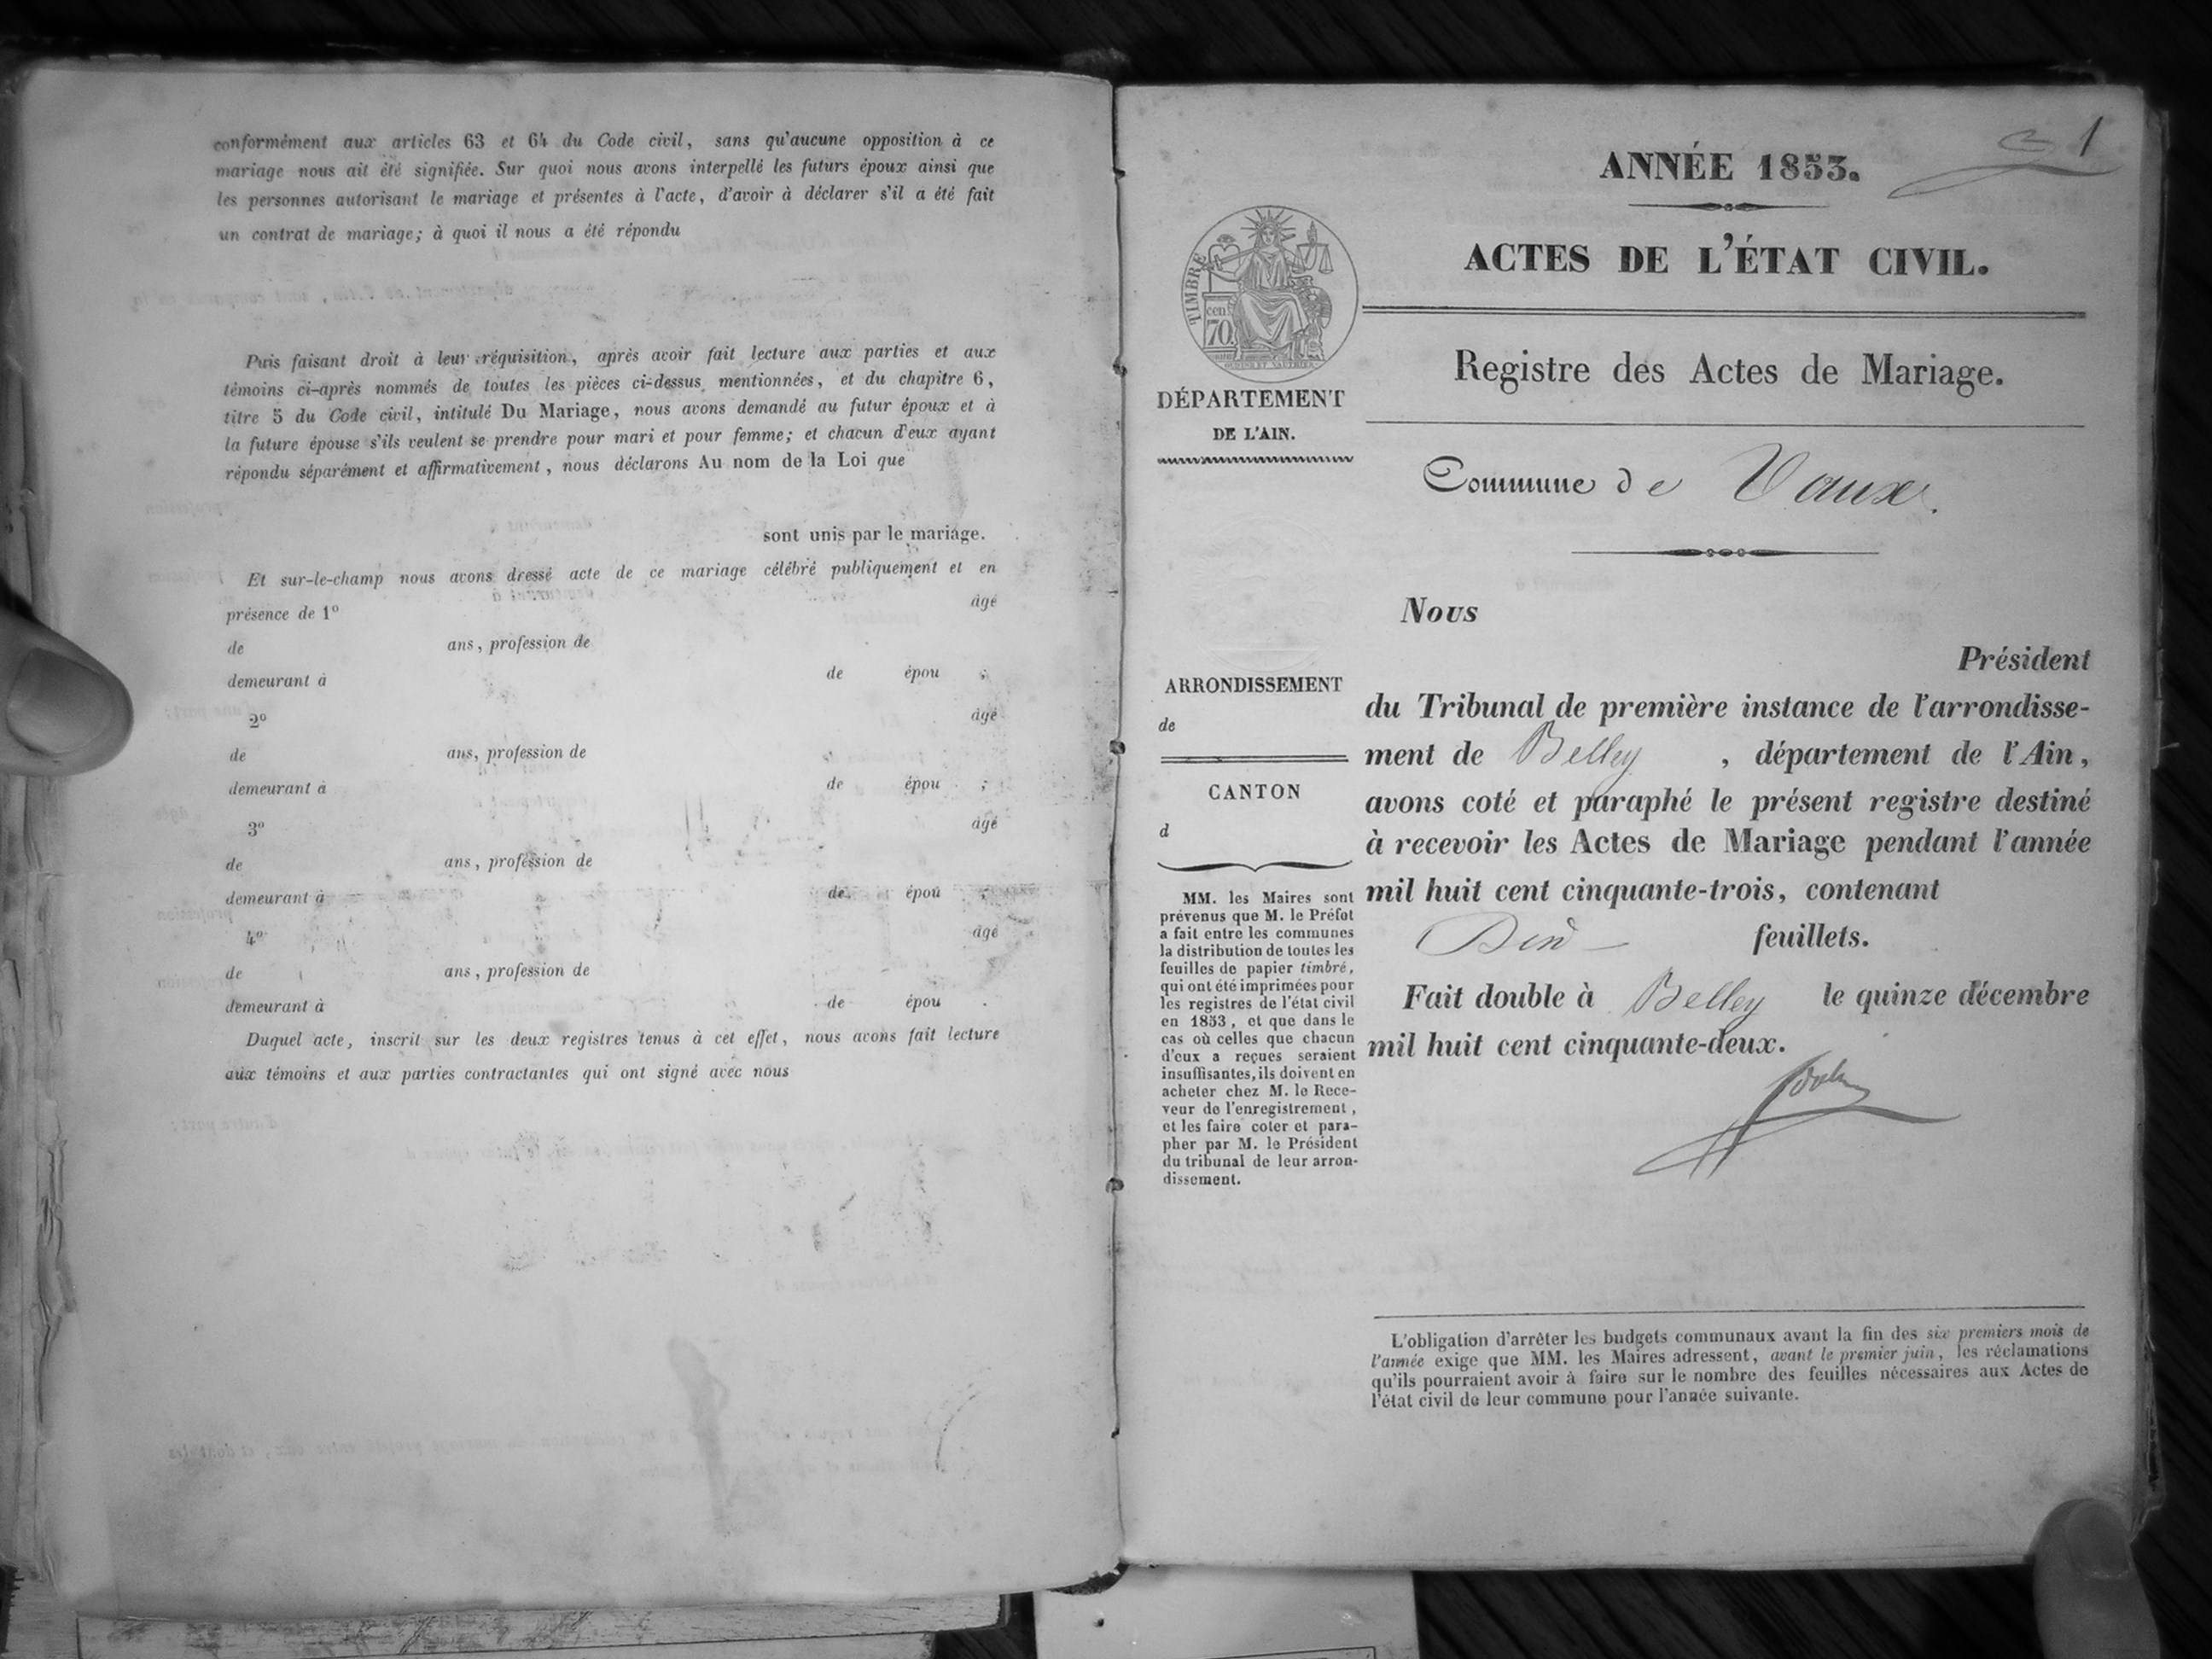 conformément aux articles 63 et 64 du Code civil, sans qu'aucune opposition à ce
mariage nous ait été signifiée. Sur quoi nous avons interpellé les futurs époux ainsi que
les personnes autorisant le mariage et présentes à l'acte, d'avoir à déclarer s'il a été fait
un contrat de mariage; à quoi il nous a été répondu
Puis faisant droit à leur réquisition, après avoir fait lecture aux parties et aux
témoins ci-après nommés de toutes les pièces ci-dessus mentionnées, et du chapitre 6,
titre 5 du Code civil, intitulé Du Mariage, nous avons demandé au futur époux et à
la future épouse s'ils veulent se prendre pour mari et pour femme; et chacun d'eux ayant
répondu séparément et affirmativement, nous déclarons Au nom de la Loi que
sont unis par le mariage.
Et sur-le-champ nous avons dressé acte de ce mariage célébré publiquement et en
présence de 1º âgé
de ans, profession de
demeurant à de épou ;
2º âgé
de ans, profession de
demeurant à de épou ;
3º âgé
de ans, profession de
demeurant à de épou ;
4º âgé
de ans, profession de
demeurant à de épou .
Duquel acte, inscrit sur les deux registres tenus à cet effet, nous avons fait lecture
aux témoins et aux parties contractantes qui ont signé avec nous
1
ANNÉE 1853.
ACTES DE L'ÉTAT CIVIL.
TIMBRE
cen.
70
Registre des Actes de Mariage.
DÉPARTEMENT
DE L'AIN.
Commune de Vaux.
Nous
Président
du Tribunal de première instance de l'arrondisse-
ment de Belley , département de l'Ain,
avons coté et paraphé le présent registre destiné
à recevoir les Actes de Mariage pendant l'année
mil huit cent cinquante-trois, contenant
feuillets.
Fait double à Belley le quinze décembre
mil huit cent cinquante-deux.
ARRONDISSEMENT
de
CANTON
d
MM. les Maires sont
prévenus que M. le Préfet
a fait entre les communes
la distribution de toutes les
feuilles de papier timbré,
qui ont été imprimées pour
les registres de l'état civil
en 1853, et que dans le
cas où celles que chacun
d'eux a reçues seraient
insuffisantes, ils doivent en
acheter chez M. le Rece-
veur de l'enregistrement,
et les faire coter et para-
pher par M. le Président
du tribunal de leur arron-
dissement.
L'obligation d'arrêter les budgets communaux avant la fin des six premiers mois de
l'année exige que MM. les Maires adressent, avant le premier juin, les réclamations
qu'ils pourraient avoir à faire sur le nombre des feuilles nécessaires aux Actes de
l'état civil de leur commune pour l'année suivante.